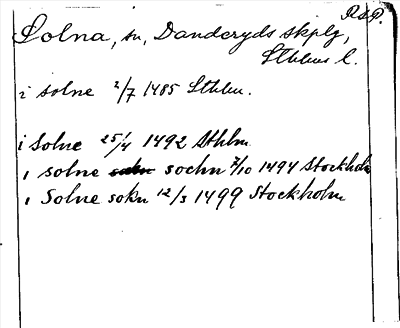 R.d.P.
Solna, sn, Danderyds skplg,
Sthlms l.
i solne 2/7 1485 Sthlm.
i Solne 25/4 1492 Sthlm
i solne sokn sochn 7/10 1494 Stockholm
i Solne sokn 12/3 1499 Stockholm